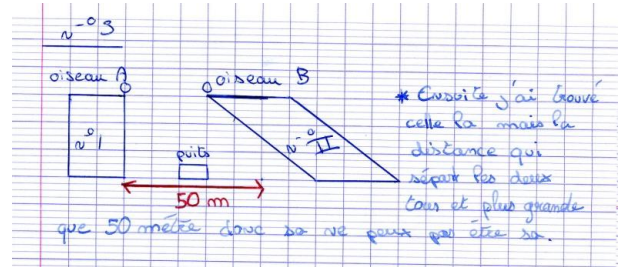 n°3
oiseau A
oiseau B
n°1
n° II
puits
50 m
* Ensuite j'ai trouvé
celle la mais la
distance qui
sépare les deux
tous et plus grande
que 50 métre donc sa ne peux pas être sa.